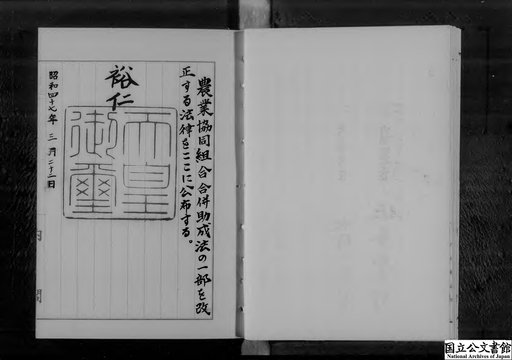 農業協同組合合併助成法の一部を改
正する法律をここに公布する。
裕仁
天皇
御璽
昭和四十七年三月二十二日
内
閣
国立公文書館
National Archives of Japan